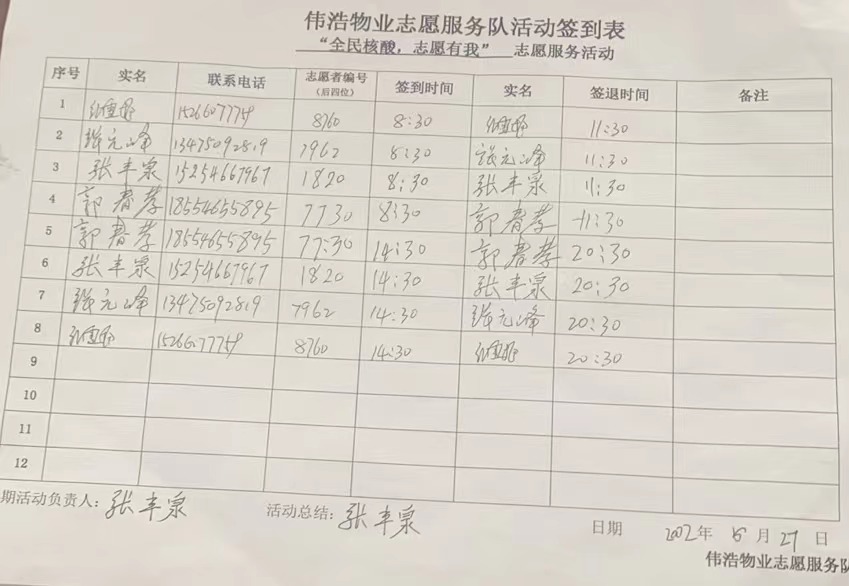 伟浩物业志愿服务队活动签到表
“全民核酸，志愿有我” 志愿服务活动
序号 实名 联系电话 志愿者编号（后四位） 签到时间 实名 签退时间 备注
1 8760 8:30 11:30
2 张元峰 13475092819 7962 8:30 张元峰 11:30
3 张丰泉 15254667967 1820 8:30 张丰泉 11:30
4 郭春孝 18554655895 7730 8:30 郭春孝 11:30
5 郭春孝 18554655895 77:30 14:30 郭春孝 20:30
6 张丰泉 15254667967 1820 14:30 张丰泉 20:30
7 张元峰 13475092819 7962 14:30 张元峰 20:30
8 8760 14:30 20:30
9
10
11
12
期活动负责人：张丰泉 活动总结：张丰泉 日期 2002年 5月 27日
伟浩物业志愿服务队